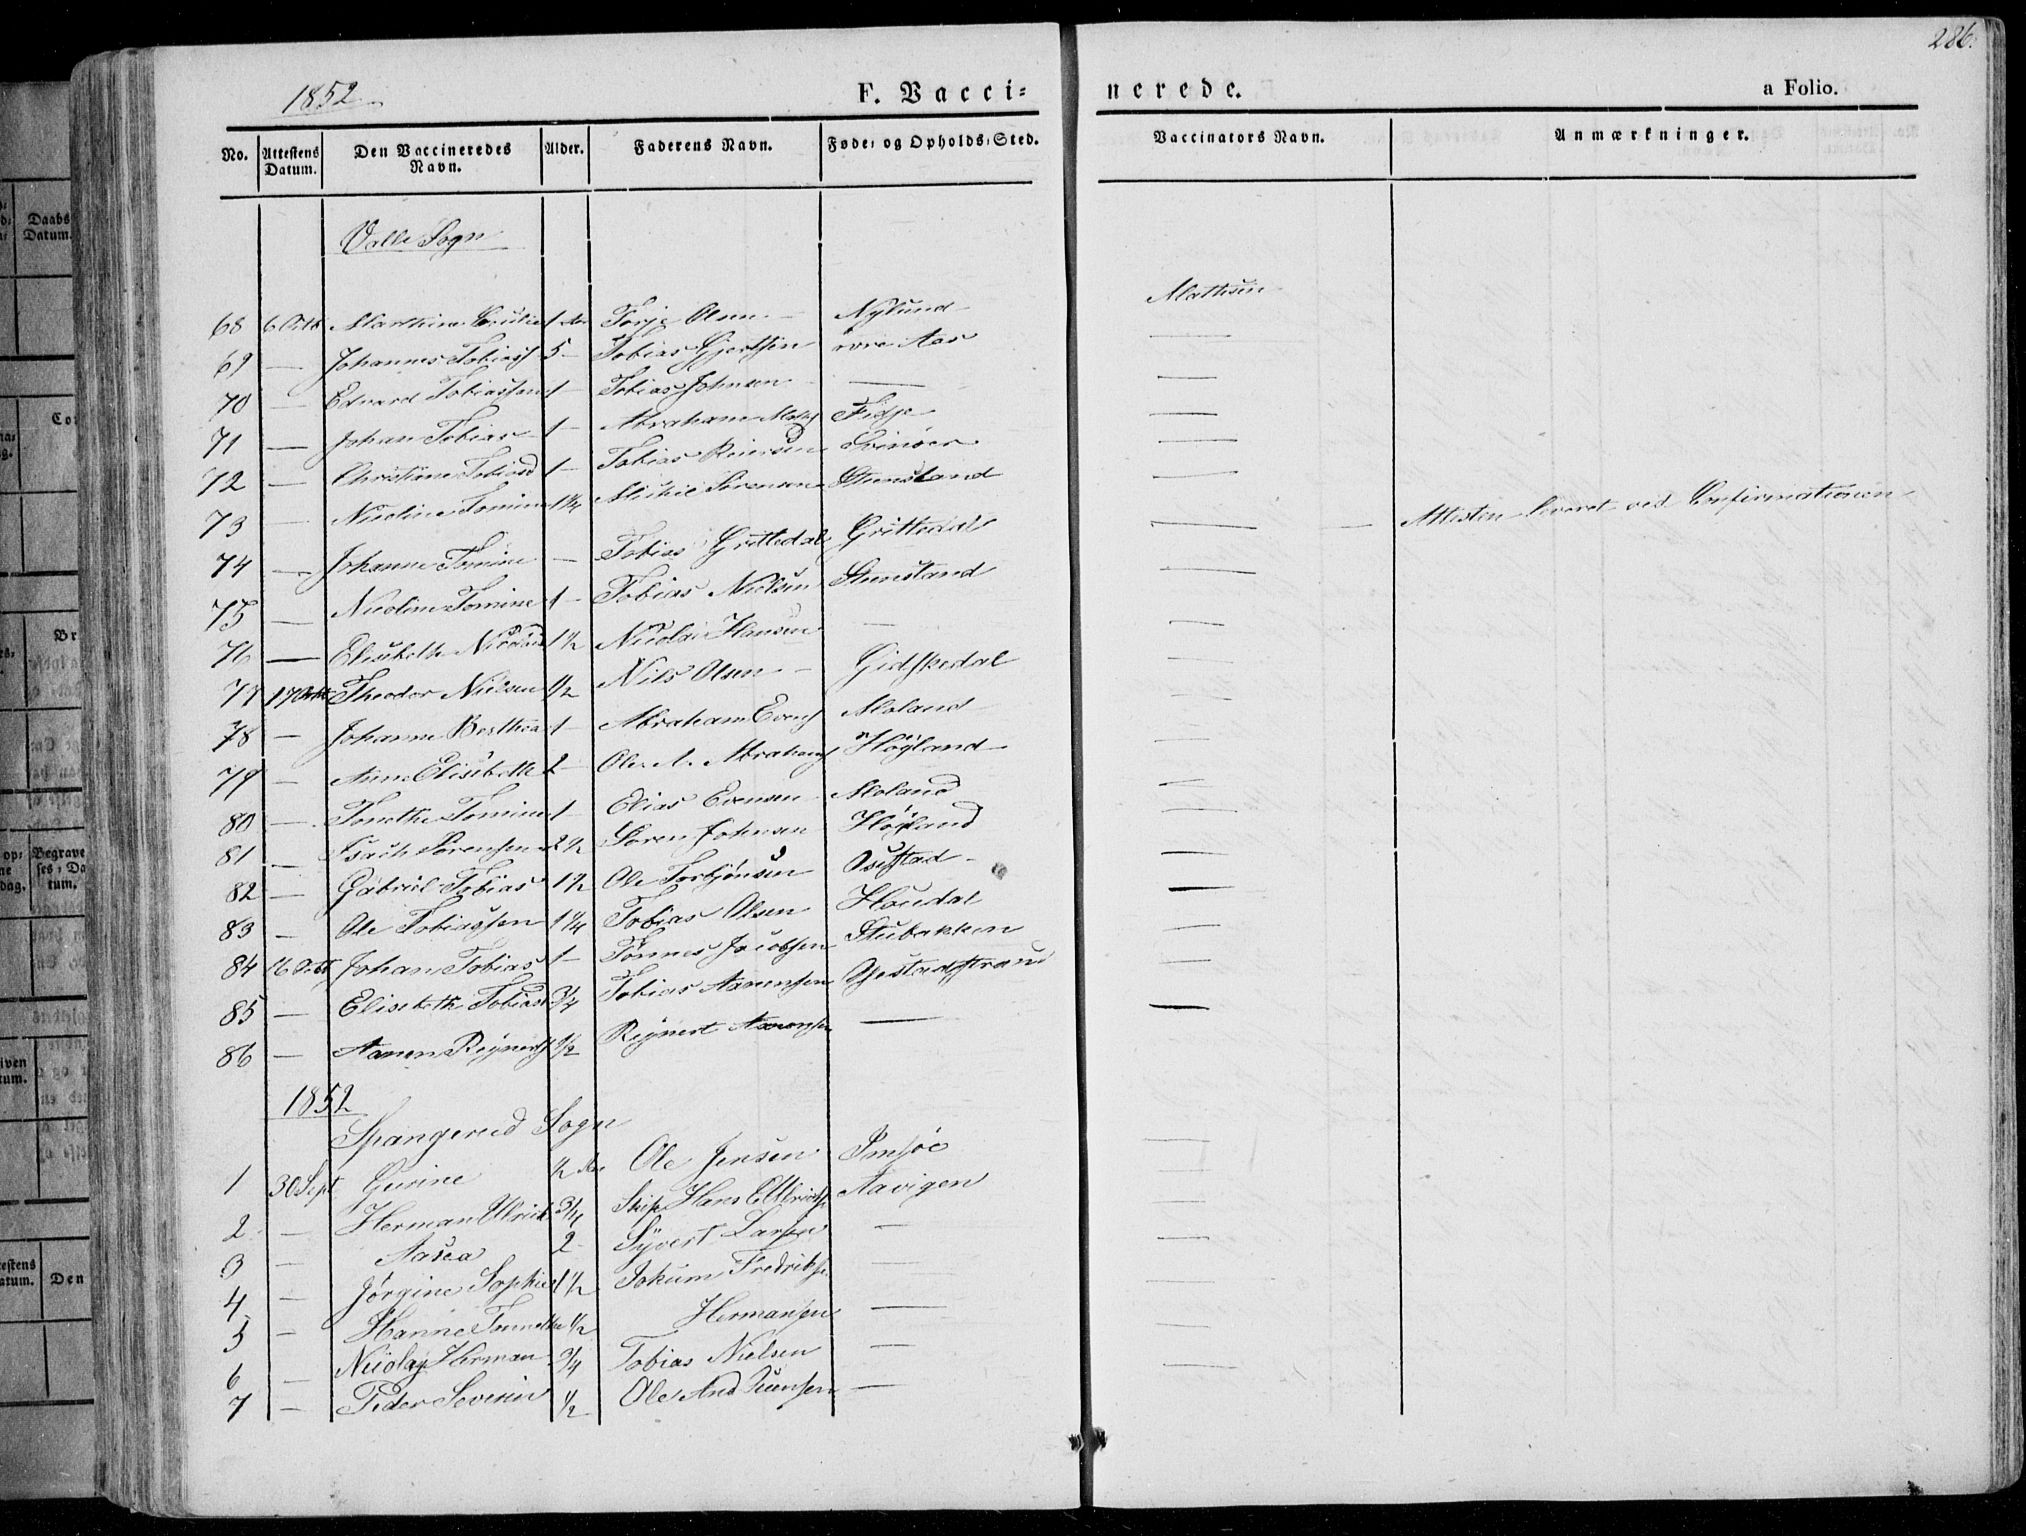 286.
1852
F. Vacci= nerede.
a Folio.
No. Attestens Datum. Den Vaccineredes Navn. Alder. Faderens Navn. Føde= og Opholds=Sted. Vaccinators Navn. Anmærkninger.
Valle Sogn
68 6 Octb Marthine 1 Torje Olsen – Nylund Mathesen
69 — Johannes Tobiass 5 – Tobias Gjertsen øvre Aas —
70 — Edvard Tobiassen 1 – Tobias Johnsen — —
71 — Johan Tobias 1 – Abraham Fidje —
72 — Christiane Tobiasd 1 – Tobias Reiersen —
73 — Nicoline Tomine 1 1/4 Michel Sørensen Stensland —
74 — Johanne Tomine — Tobias Grettedal Grettedal — — Attesten leveret ved Confirmationen
75 — Nicoline Tomine 1 – Tobias Nielsen Stensland —
76 — Elisabeth 1 1/2 Nicolai Hansen — —
77 17 Octb Theodor Nielsen 1/2 Nils Olsen – Gidskedal —
78 — Johanne Berthea 1 – Abraham Evens Moland —
79 — Anne Elisabeth 2 – Ole A. Abrahams Høgland —
80 — Tomine 1 – Elias Evensen Moland —
81 — Isach Sørensen 2 1/2 Søren Johnsen Høgland —
82 — Gabriel Tobias 1 1/2 Ole Torbjønsen Osestad —
83 — Ole Tobiassen 1 1/4 Tobias Olsen Houdal —
84 16 Octb Johan Tobias 1 – Tønnes Jacobsen Stubakken —
85 — Elisabeth Tobiasd 3/4 Tobias Aanensen —
86 — Aanen Reinerts 1/2 Reinert Aanensen — —
1852
Spangereid Sogn
1 30 Sept Gurine 1/2 Ole Jensen Imsøe —
2 — Herman Ulrick 3/4 Skip. Hans Aavigen —
3 — Aasea 2 – Syvert Larsen — —
4 — Jørgine Sophie 1 1/2 Jokum Fredriksen — —
5 — Hanne 1/2 Hermansen — —
6 — Nicolay Herman 3/4 Tobias Nielsen — —
7 — Peder Severin 1/2 Ole —